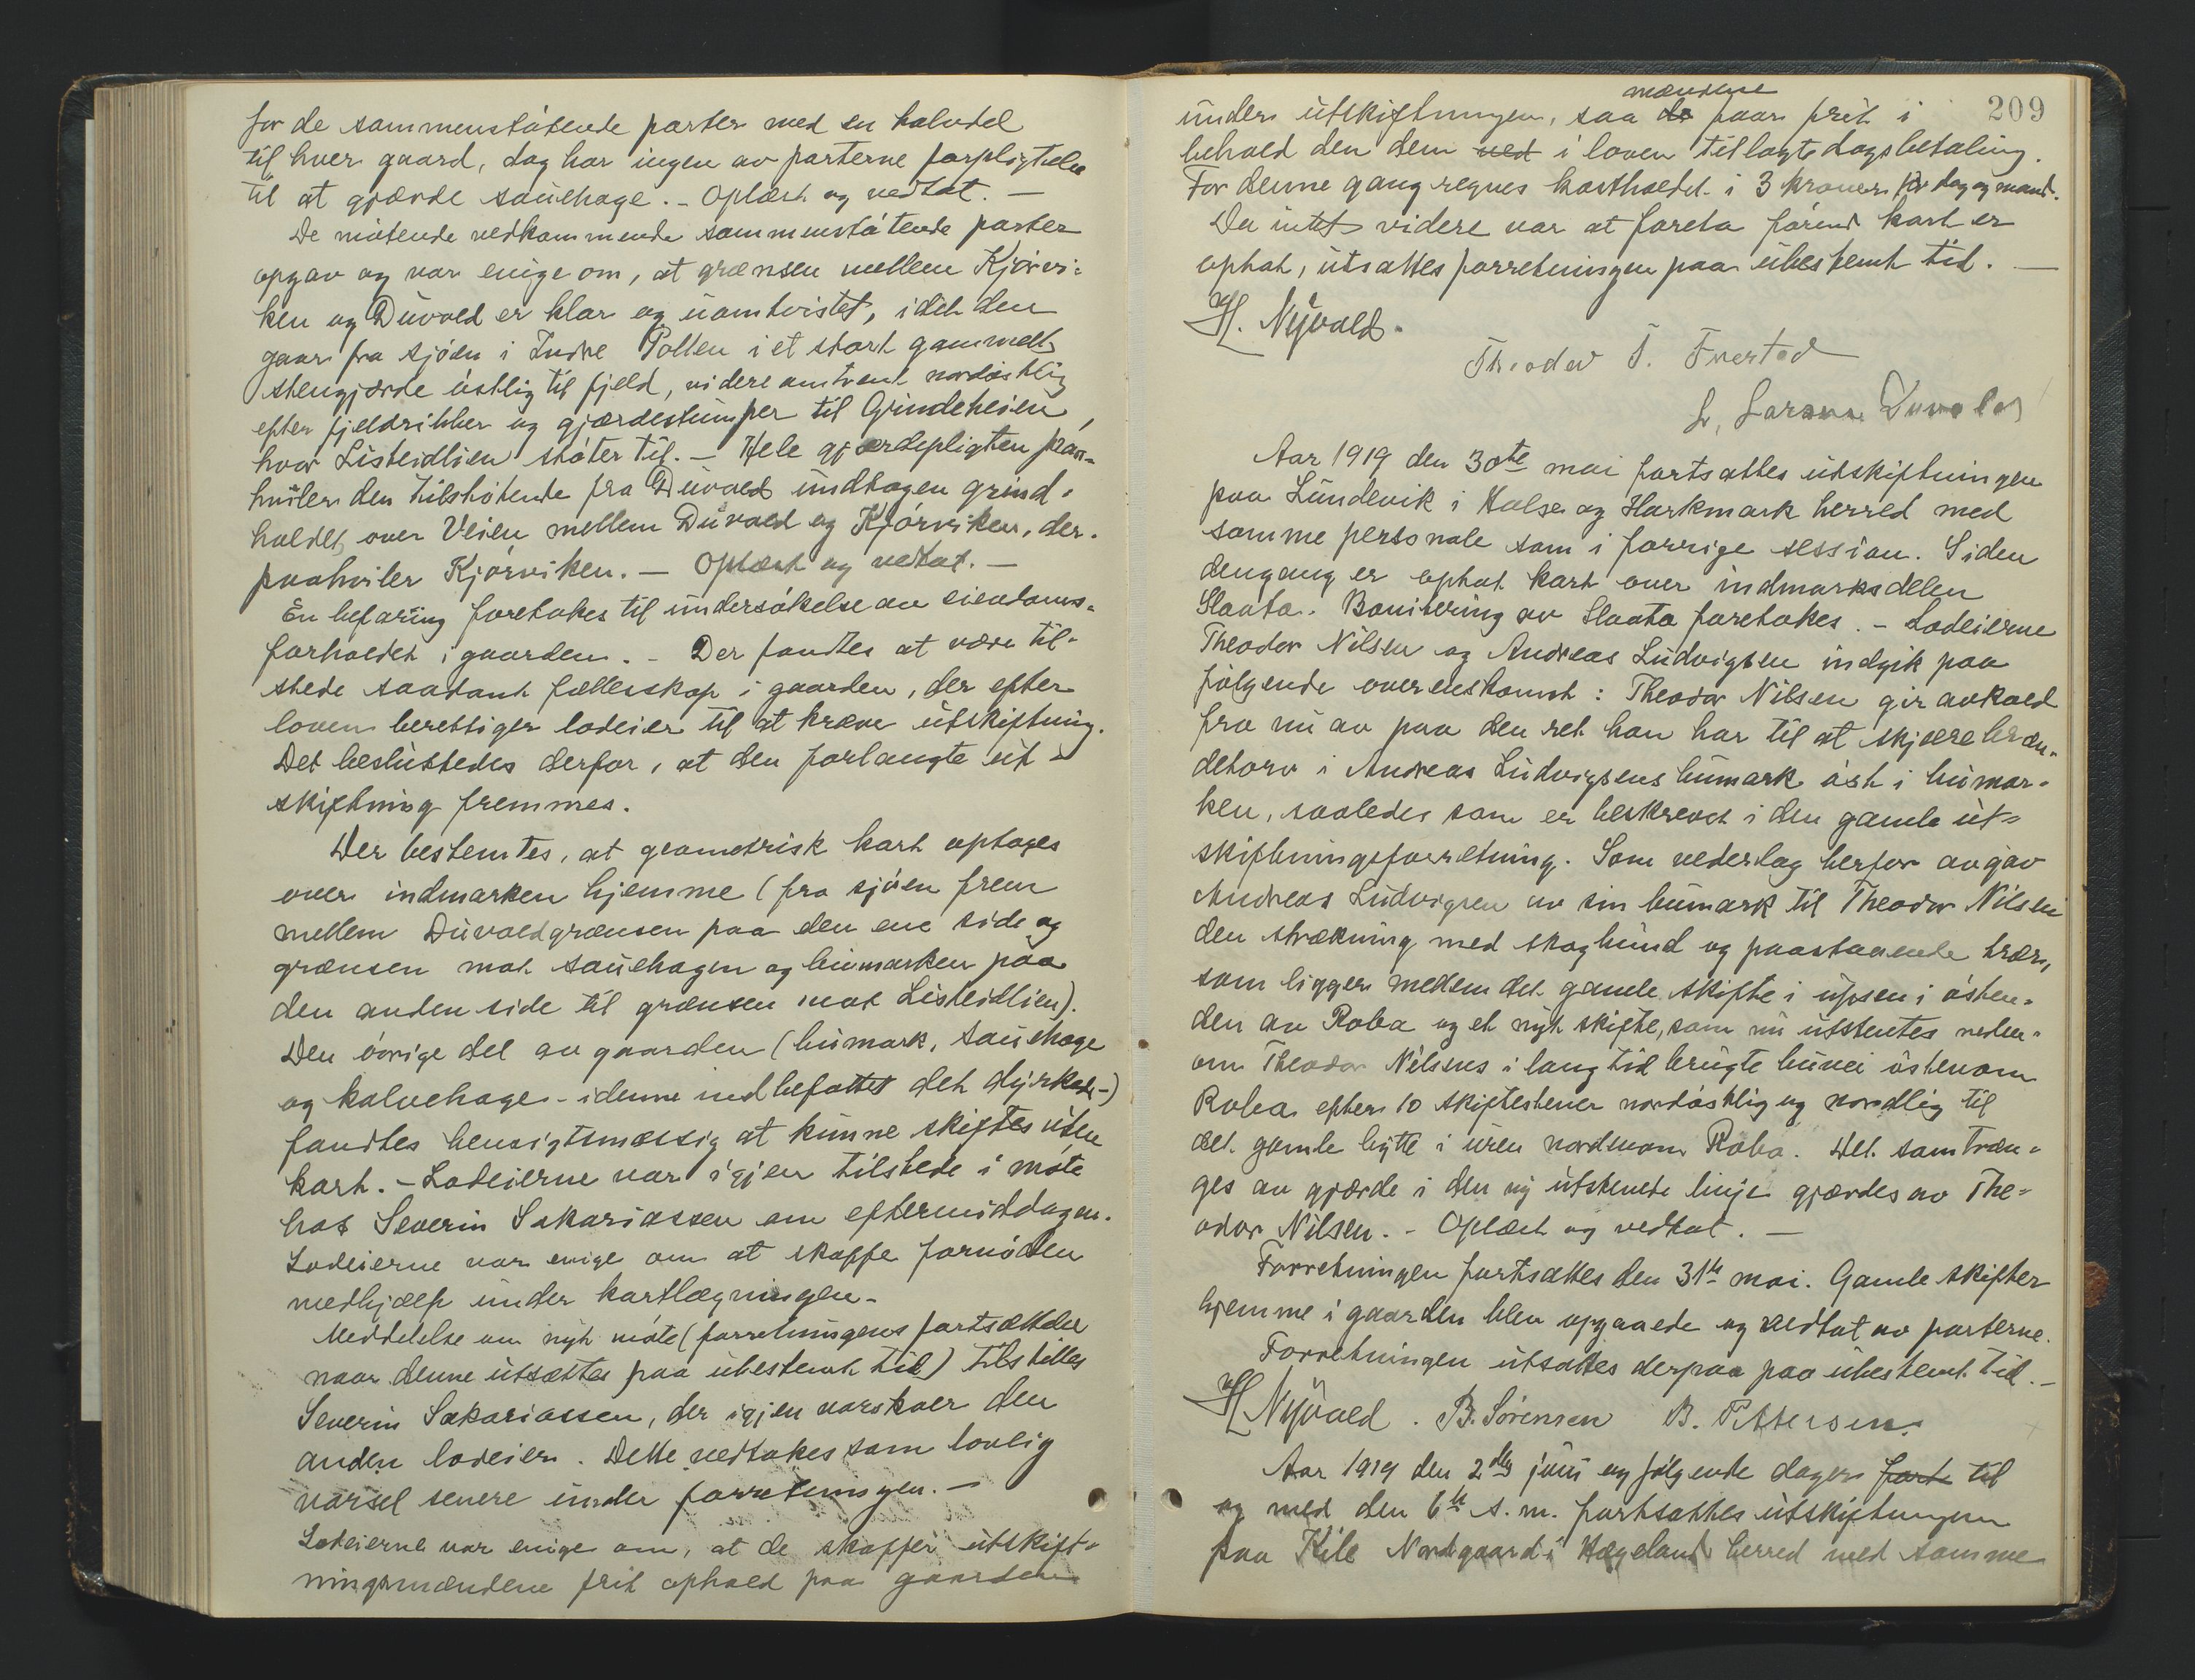 for de sammenstøtende parter med en halvdel
til hver gaard, dog har ingen av parterne forpligtelse
til at gjærde sauehage. – Oplæst og vedtat. –
De møtende vedkommende sammenstøtende parter
opgav og var enige om, at grænsen mellem Kjørvi-
ken og Duvold er klar og uomtvistet, idet den
gaar fra sjøen i Indre Pollen i et stort gammelt
stengjærde østlig til fjeld, videre omtrent nordøstlig
efter fjeldribber og gjærdestumper til Grindeheien,
hvor Listeidlien støter til. – Hele gjærdepligten paa-
hviler den tilstøtende fra Duvold undtagen grind-
holdet over Veien mellem Duvold og Kjørviken, der
paahviler Kjørviken. – Oplæst og vedtat. –
En befaring foretokes til undersøkelse av eiendoms-
forholdet i gaarden. – Der fandtes at være til-
stede saadant fællesskap i gaarden, der efter
loven berettiger lodeier til at kræve utskiftning.
Det besluttedes derfor, at den forlangte ut-
skiftning fremmes.
Der bestemtes, at geometrisk kart optages
over indmarken hjemme (fra sjøen frem
mellem Duvoldgrænsen paa den ene side og
grænsen mot sauehagen og bumarken paa
den anden side til grænsen mot Listeidlien).
Den øvrige del av gaarden (bumark, sauehage
og kalvehage – idenne indbefattet det dyrkede –)
fandtes hensigtsmæssig at kunne skiftes uten
kart. – Lodeierne var igjen tilstede i møte
hos Severin Sakariassen om eftermiddagen.
Lodeierne var enige om at skaffe fornøden
medhjælp under kartlægningen –
Meddelelse om nyt møte (forretningens fortsættelse
naar denne utsættes paa ubestemt tid) tilstilles
Severin Sakariassen, der igjen varskoer den
anden lodeier. Dette vedtokes som lovlig
varsel senere under forretningen. –
Lodeierne var enige om, at de skaffer utskift-
ningsmændene frit ophold paa gaarden
209
mændene
under utskiftningen, saa de faar frit i
behold den dem ved i loven tillagte dagsbetaling.
For denne gang regnes kostholdet i 3 kroner pr dag og mand.
Da intet videre var at foreta førend kart er
optat, utsattes forretningen paa ubestemt tid. –
H. Nyvold.
Theodor T.
L. Larsen Duvold
Aar 1919 den 30te mai fortsattes utskiftningen
paa Lundevik i Halse og Harkmark herred med
samme personale som i forrige session. Siden
dengang er optat kart over indmarksdelen
Slaata. Bonitering av Slaata foretokes. – Lodeierne
Theodor Nilsen og Andreas Ludvigsen indgik paa
følgende overenskomst: Theodor Nilsen gir avkald
fra nu av paa den ret han har til at skjære bræn-
detorv i Andreas Ludvigsens bumark øst i bumar-
ken, saaledes som er beskrevet i den gamle ut-
skiftningsforretning. Som vederlag herfor avgav
Andreas Ludvigsen av sin bumark til Theodor Nilsen
den strækning med skogbund og paastaaende trær,
som ligger mellem det gamle skifte i upsen i østen-
den av Roba og et nyt skifte, som nu utstentes neden-
om Theodor Nilsens i lang tid brugte buvei østenom
Roba efter 10 skiftestener nordøstlig og nordlig til
det gamle bytte i uren nordenom Roba. Det som træn-
ges av gjærde i den ny utstenede linje gjærdes av The-
odor Nilsen. – Oplæst og vedtat. –
Forretningen fortsattes den 31te mai. Gamle skifter
hjemme i gaarden blev opgaaede og vedtat av parterne.
Forretningen utsattes derpaa paa ubestemt tid. –
H Nyvold. B. Sørensen B. Pettersen.
Aar 1919 den 2den juni og følgende dager forts til
og med den 6te s. m. fortsattes utskiftningen
paa Kile Nordgaard i Hægeland herred med samme